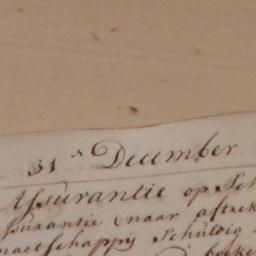 31 December
Assurantie op
assurantie naar aftrek
maetschappij Schuldig